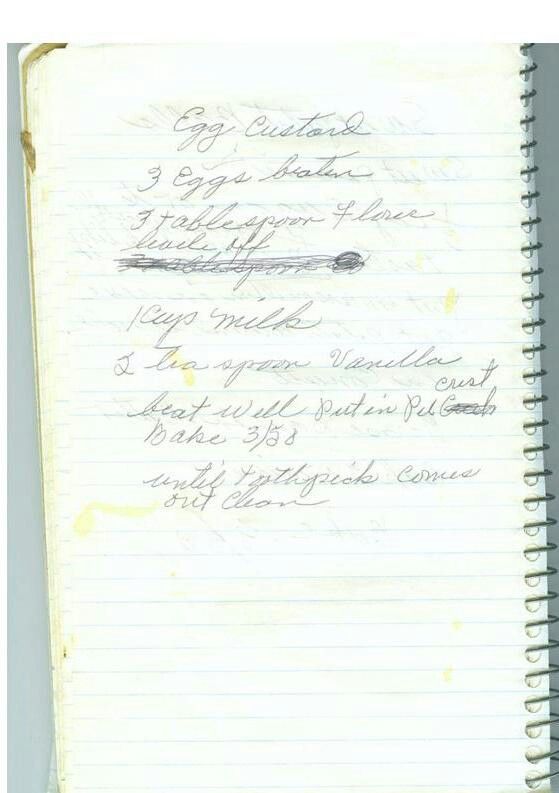 Egg Custard
3 Eggs beaten
3 tablespoon Flour
levele off
1 Cup milk
2 tea spoon Vanilla
crust
beat well put in Pie
bake 3/50
until toothpick comes
out clean